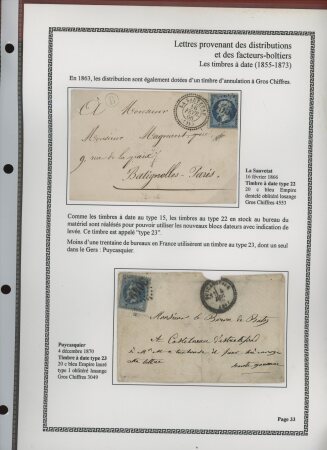 Lettres provenant des distributions
et des facteurs-boîtiers
Les timbres à date (1855-1873)
En 1863, les distribution sont également dotées d'un timbre d'annulation à Gros Chiffres.
A Monsieur
Monsieur
9, rue de la
Batignolles-Paris.
La Sauvetat
16 février 1866
Timbre à date type 22
20 c bleu Empire
dentelé oblitéré losange
Gros Chiffres 4553
Comme les timbres à date au type 15, les timbres au type 22 en stock au bureau du
matériel sont réalésés pour pouvoir utiliser les nouveaux blocs dateurs avec indication de
levée. Ce timbre est appelé "type 23".
Moins d'une trentaine de bureaux en France utilisèrent un timbre au type 23, dont un seul
dans le Gers : Puycasquier.
Puycasquier
4 décembre 1870
Timbre à date type 23
20 c bleu Empire lauré
type 1 oblitéré losange
Gros Chiffres 3049
Monsieur le Baron de
A Castelnau
Page 33